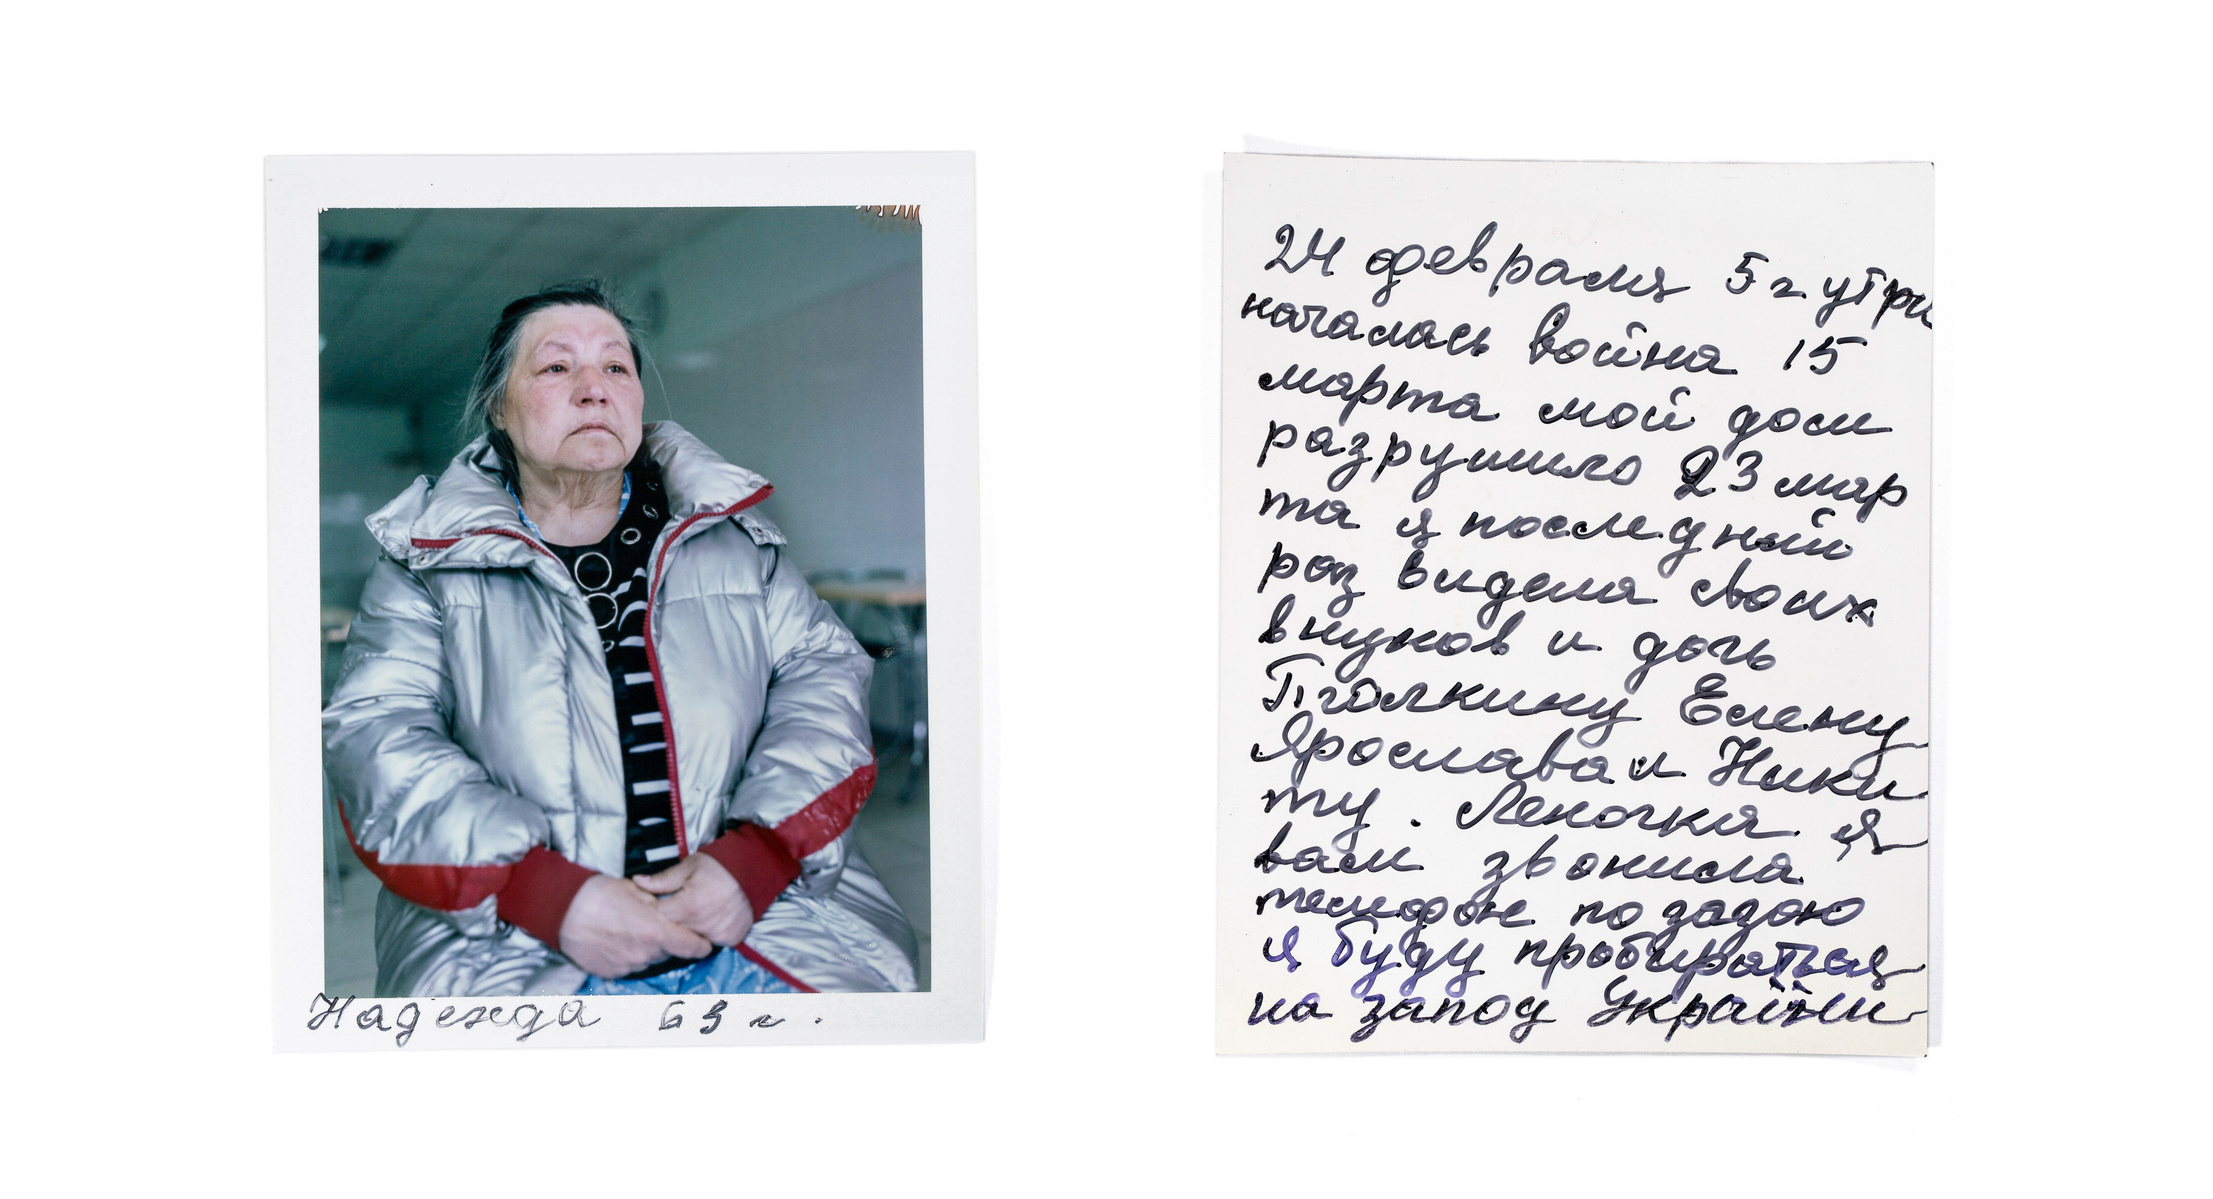 Надежда 63 г.
24 февраля 5 г. утри
началась война 15
марта мой дом
разрушило 23 мар
та я последний
раз видела своих
внуков и дочь
Елену
Ярослава и Ники
ту. Леночка я
вам звонила
телефон по
я буду пробираться
на запад Україны